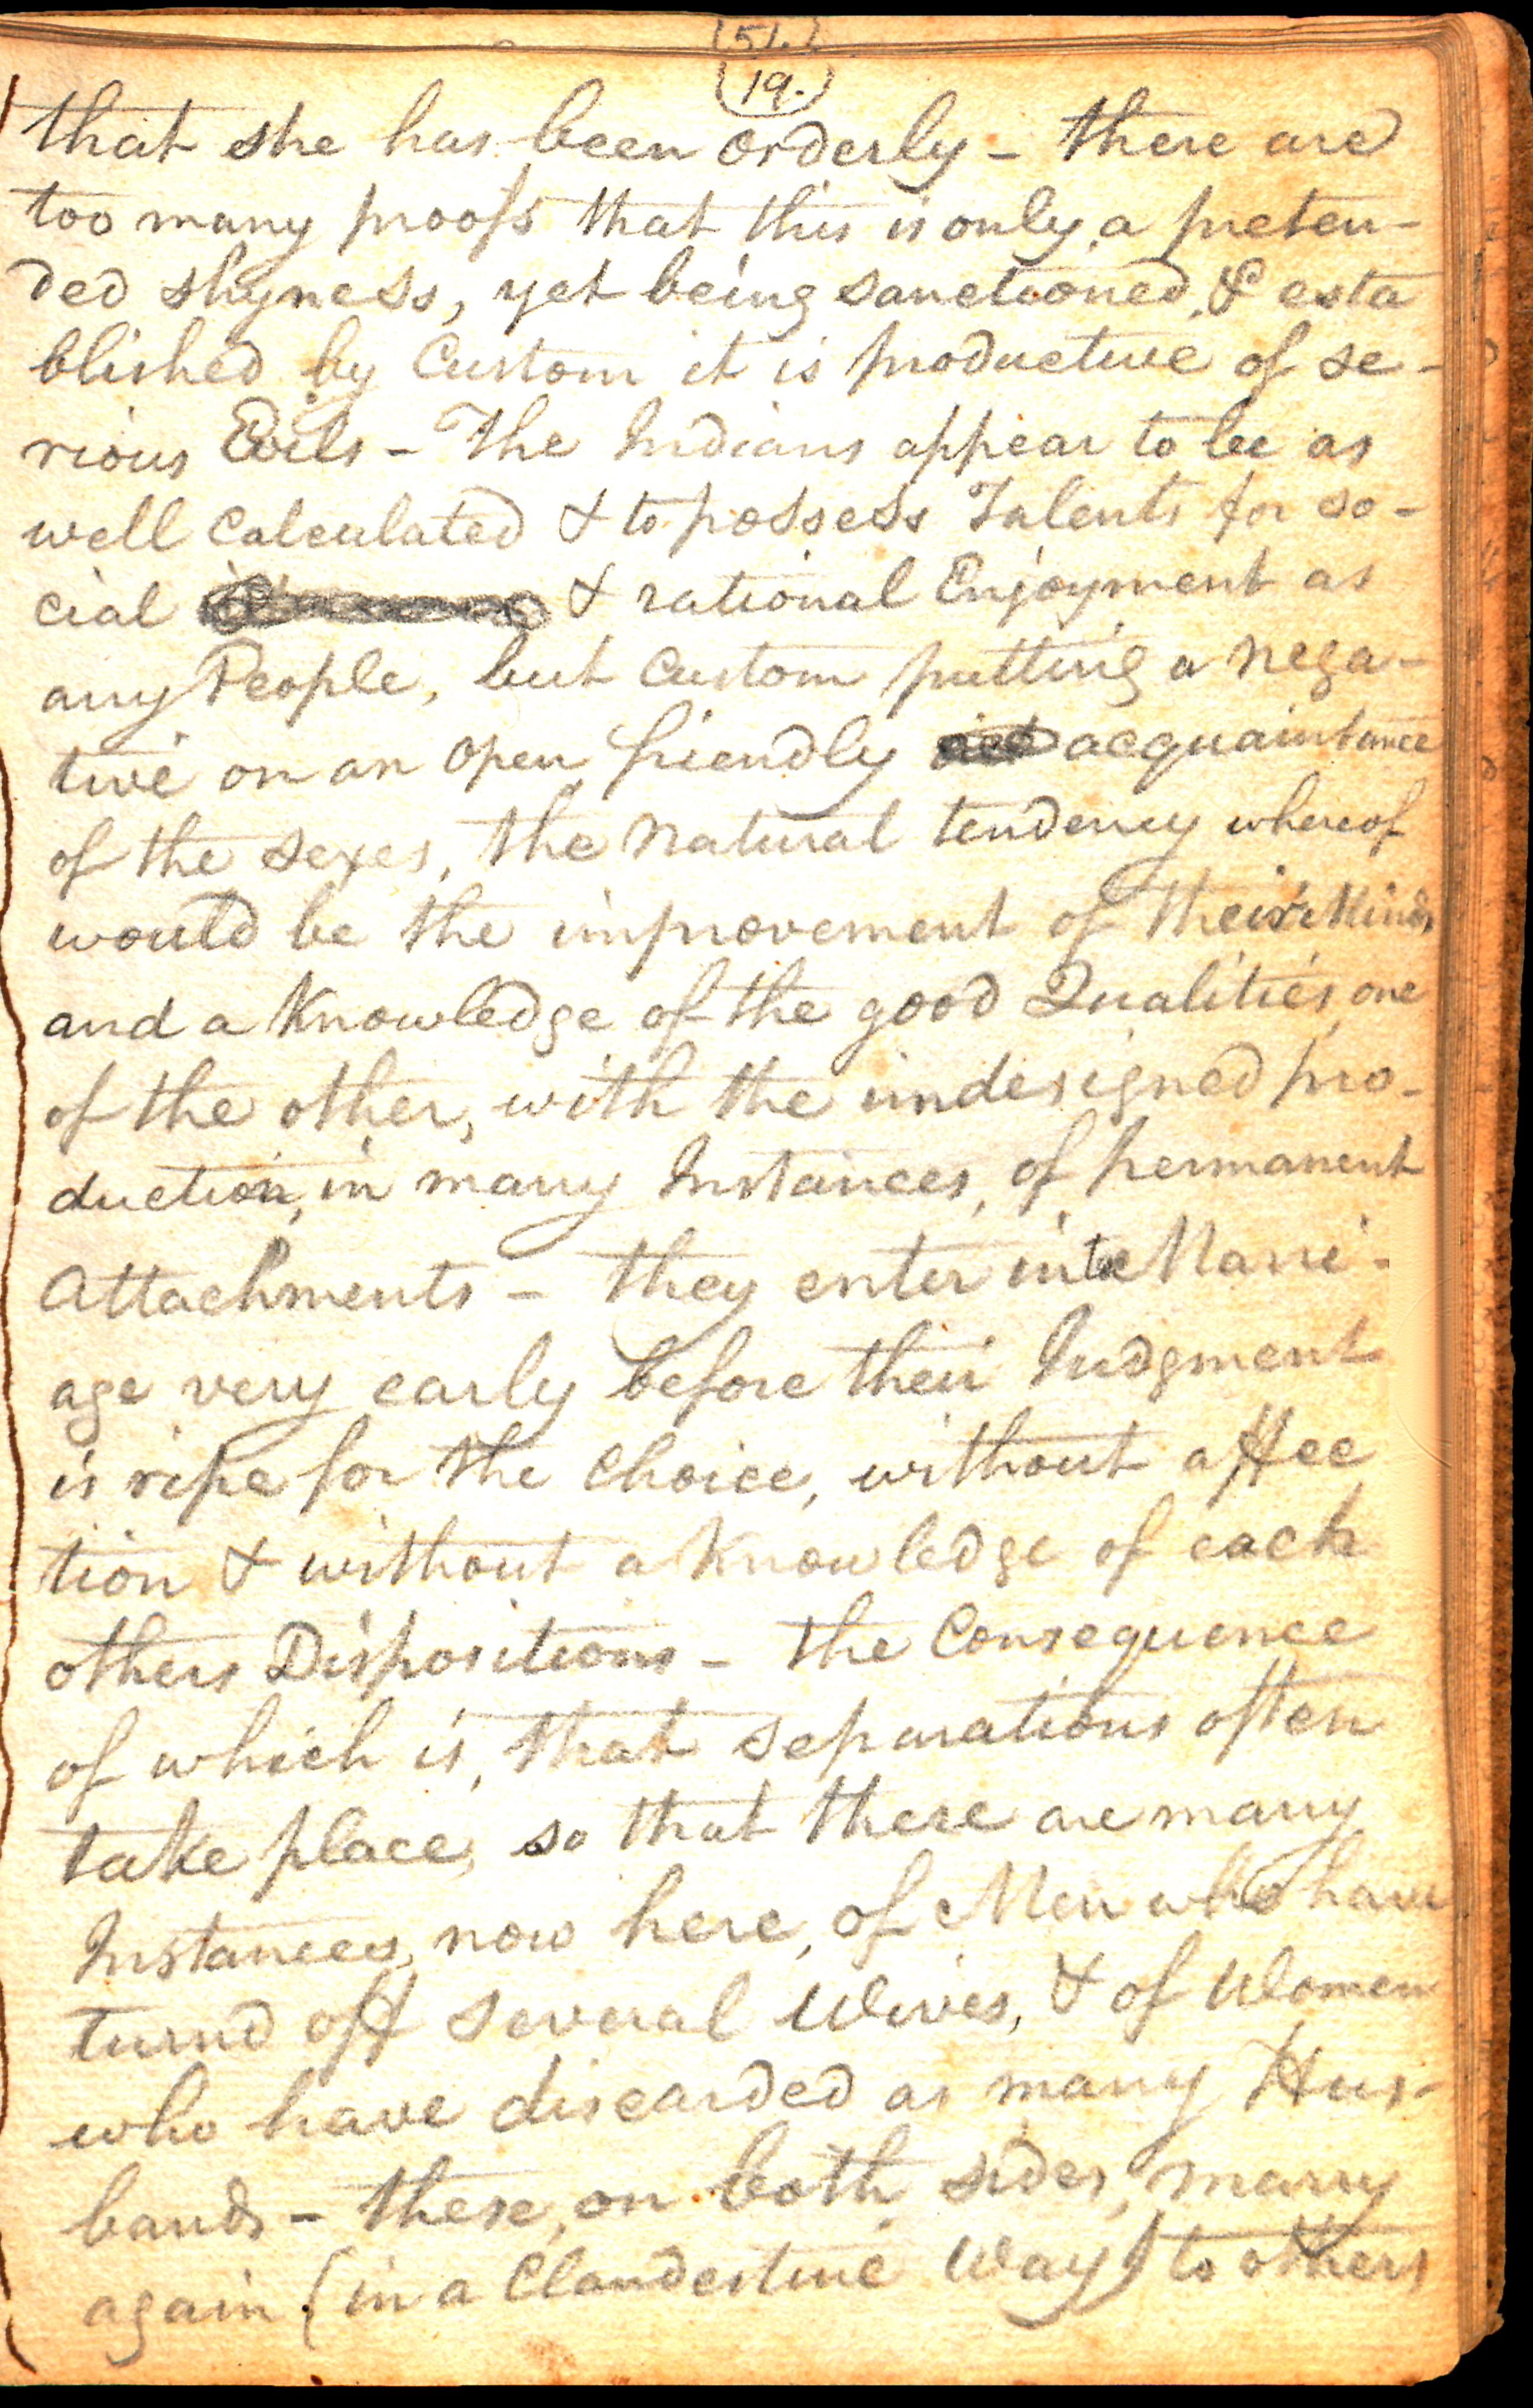 (51.)
(19.)
that she has been orderly - there are
too many proofs that this is only a preten-
ded shyness, yet being sanctioned & esta
blished by Custom it is productive of se-
rious Evils - The Indians appear to be as
well calculated & to possess Talents for so-
cial & rational Enjoyment as
any People, but Custom putting a nega-
tive on an open friendly acquaintance
of the sexes, the natural tendency whereof
would be the improvement of their Minds
and a Knowledge of the good Qualities one
of the other, with the undesigned pro-
duction, in many Instances, of permanent
Attachments - they enter into Marri-
age very early before their Judgment
is ripe for the Choice, without affec
tion & without a Knowledge of each
others Dispositions - the Consequence
of which is, that separations often
take place, so that there are many
Instances, now here, of Men who have
turnd off several Wives, & of Women
who have discarded as many Hus-
bands - these, on both sides, marry
again (in a Clandestine Way) to others